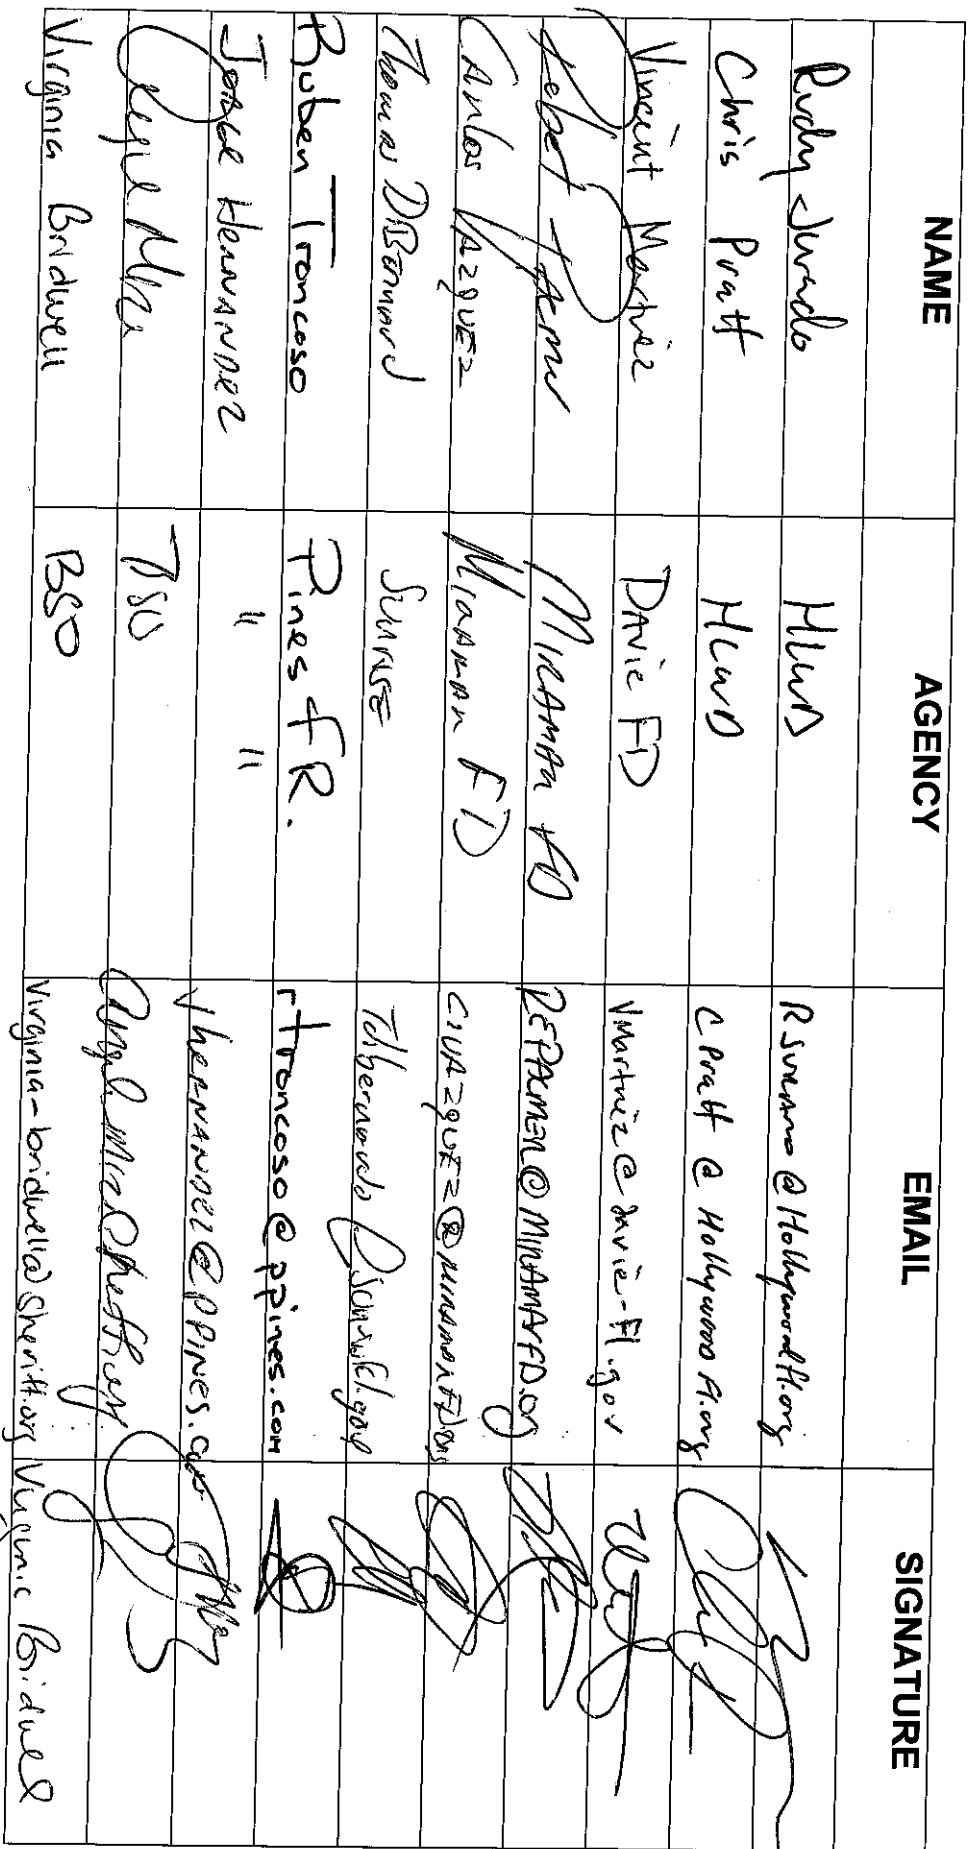 NAME AGENCY EMAIL SIGNATURE
Rudy Jurado HLWD RJURADO@Hollywoodfl.org
Chris Pratt HLWD CPratt @ Hollywood fl.org
Vincent Martinez DAVIE FD VMartinez@davie-fl.gov
MIRAMAR FD @MIRAMARFD.org
CARLOS VAZQUEZ MIRAMAR FD CJVAZQUEZ@MIRAMARFD.org
Thomas DiBernardo SUNRISE
Ruben Troncoso Pines FR. rtroncoso@ppines.com
JORGE HERNANDEZ " " JHERNANDEZ@PPINES.com
BSO
Virginia Bridwell BSO Virginia-bridwell@sheriff.org Virginia Bridwell